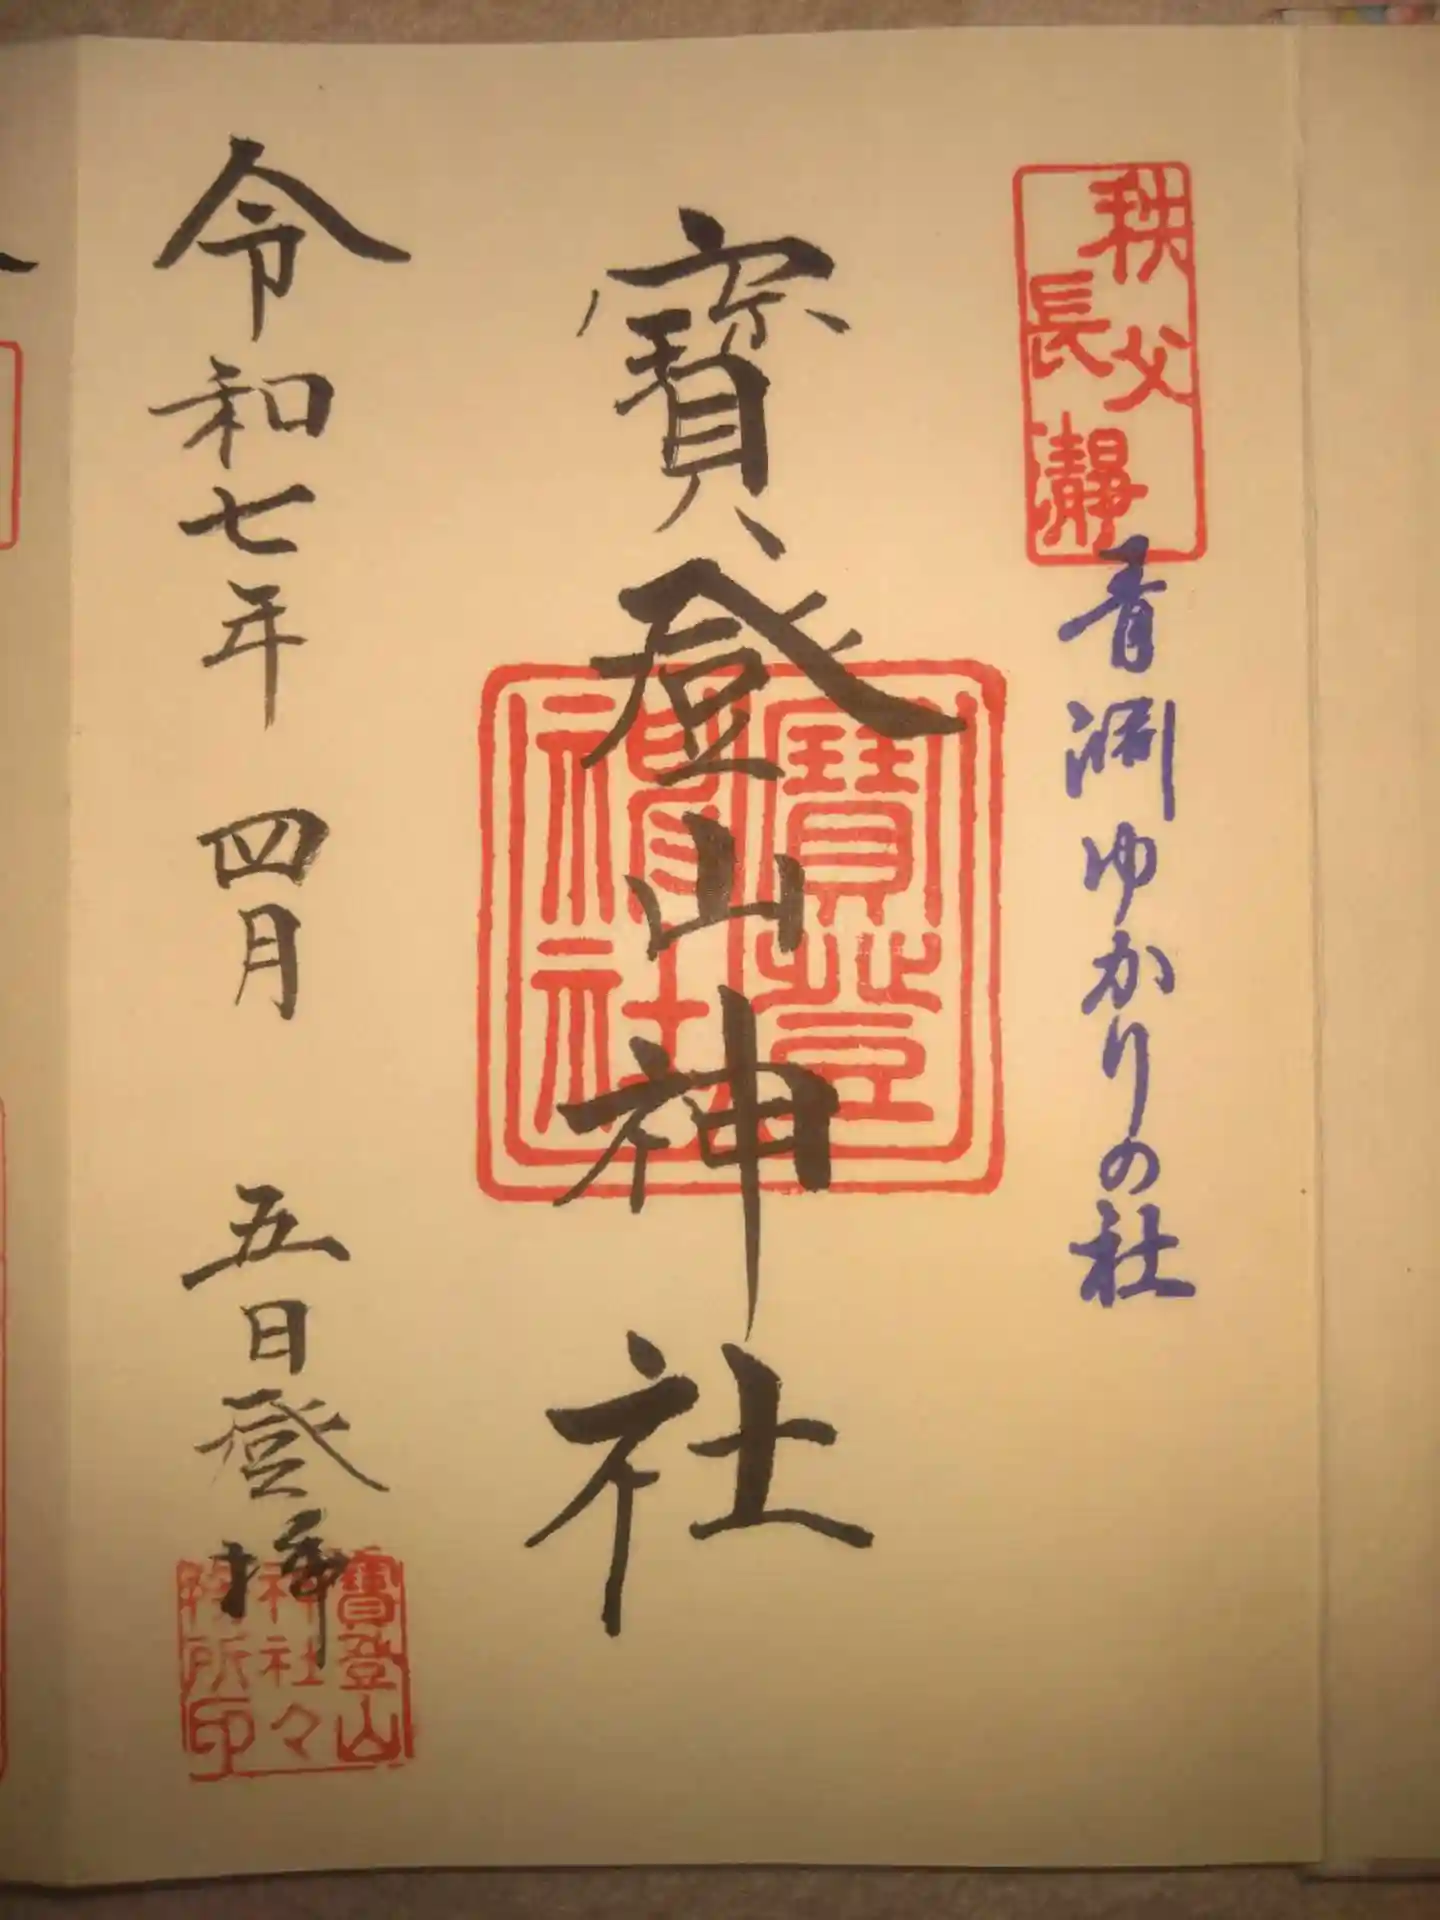 秩父
長瀞
青淵ゆかりの社
寳登山神社
寳登
神社
令和七年 四月 五日登拝
寳登山
神社々
務所印